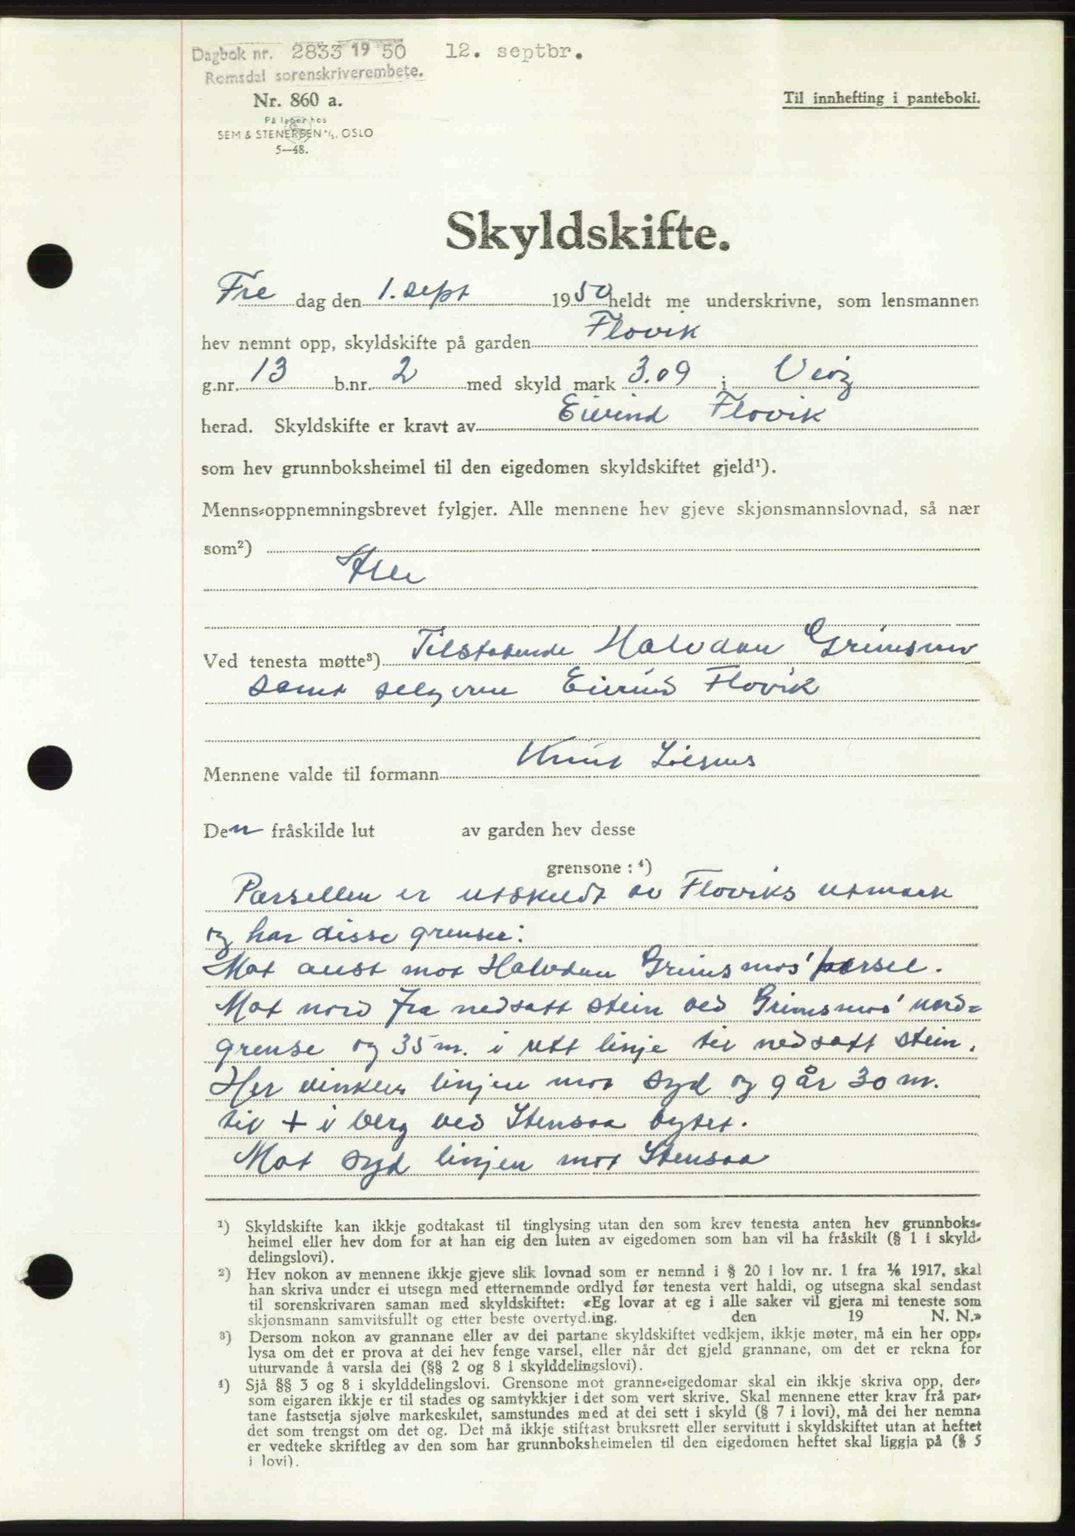 Dagbok nr. 2833 1950 12. septbr.
Romsdal sorenskriverembete.
Nr. 860 a.
Til innhefting i panteboki.
På lager hos
SEM & STENERSEN A/S, OSLO
5—48.
Skyldskifte.
Fre dag den 1. sept 1950 heldt me underskrivne, som lensmannen
hev nemnt opp, skyldskifte på garden Flovik
g.nr. 13 b.nr. 2 med skyld mark 3.09 i Veöy
herad. Skyldskifte er kravt av Eivind Flovik
som hev grunnboksheimel til den eigedomen skyldskiftet gjeld¹).
Menns-oppnemningsbrevet fylgjer. Alle mennene hev gjeve skjønsmannslovnad, så nær
som²)
Alle
Ved tenesta møtte³) Tilstøtende Halvdan Grimsmo
samt selgeren Eivind Flovik
Mennene valde til formann Knut
Den fråskilde lut av garden hev desse
grensone : ⁴)
Parsellen er utskildt av Floviks utmark
og har disse grenser:
Mot aust mot Halvdan Grimsmos' parsel.
Mot nord fra nedsatt stein ved Grimsmos' nord=
grense og 35 m. i rett linje til nedsatt stein.
Her vinkles linjen mot syd og går 30 m.
til + i berg ved Stensaa bytet.
Mot syd linjen mot Stensaa
¹) Skyldskifte kan ikkje godtakast til tinglysing utan den som krev tenesta anten hev grunnboks-
heimel eller hev dom for at han eig den luten av eigedomen som han vil ha fråskilt (§ 1 i skyld-
delingslovi).
²) Hev nokon av mennene ikkje gjeve slik lovnad som er nemnd i § 20 i lov nr. 1 fra 1/6 1917, skal
han skriva under ei utsegn med etternemnde ordlyd før tenesta vert haldi, og utsegna skal sendast
til sorenskrivaren saman med skyldskiftet: «Eg lovar at eg i alle saker vil gjera mi teneste som
skjønsmann samvitsfullt og etter beste overtyding. den 19 N. N.»
³) Dersom nokon av grannane eller av dei partane skyldskiftet vedkjem, ikkje møter, må ein her opp-
lysa om det er prova at dei hev fenge varsel, eller når det gjeld grannane, om det er rekna for
uturvande å varsla dei (§§ 2 og 8 i skylddelingslovi).
⁴) Sjå §§ 3 og 8 i skylddelingslovi. Grensone mot granne-eigedomar skal ein ikkje skriva opp, der-
som eigaren ikkje er til stades og samtykkjer i det som vert skrive. Skal mennene etter krav frå par-
tane fastsetja sjølve markeskilet, samstundes med at dei sett i skyld (§ 7 i lovi), må dei her nemna
det som trengst om det og. Det må ikkje stiftast bruksrett eller servitutt i skyldskiftet utan at heftet
er vedteke skriftleg av den som har grunnboksheimelen til den eigedomen heftet skal liggja på (§ 5
i lovi).